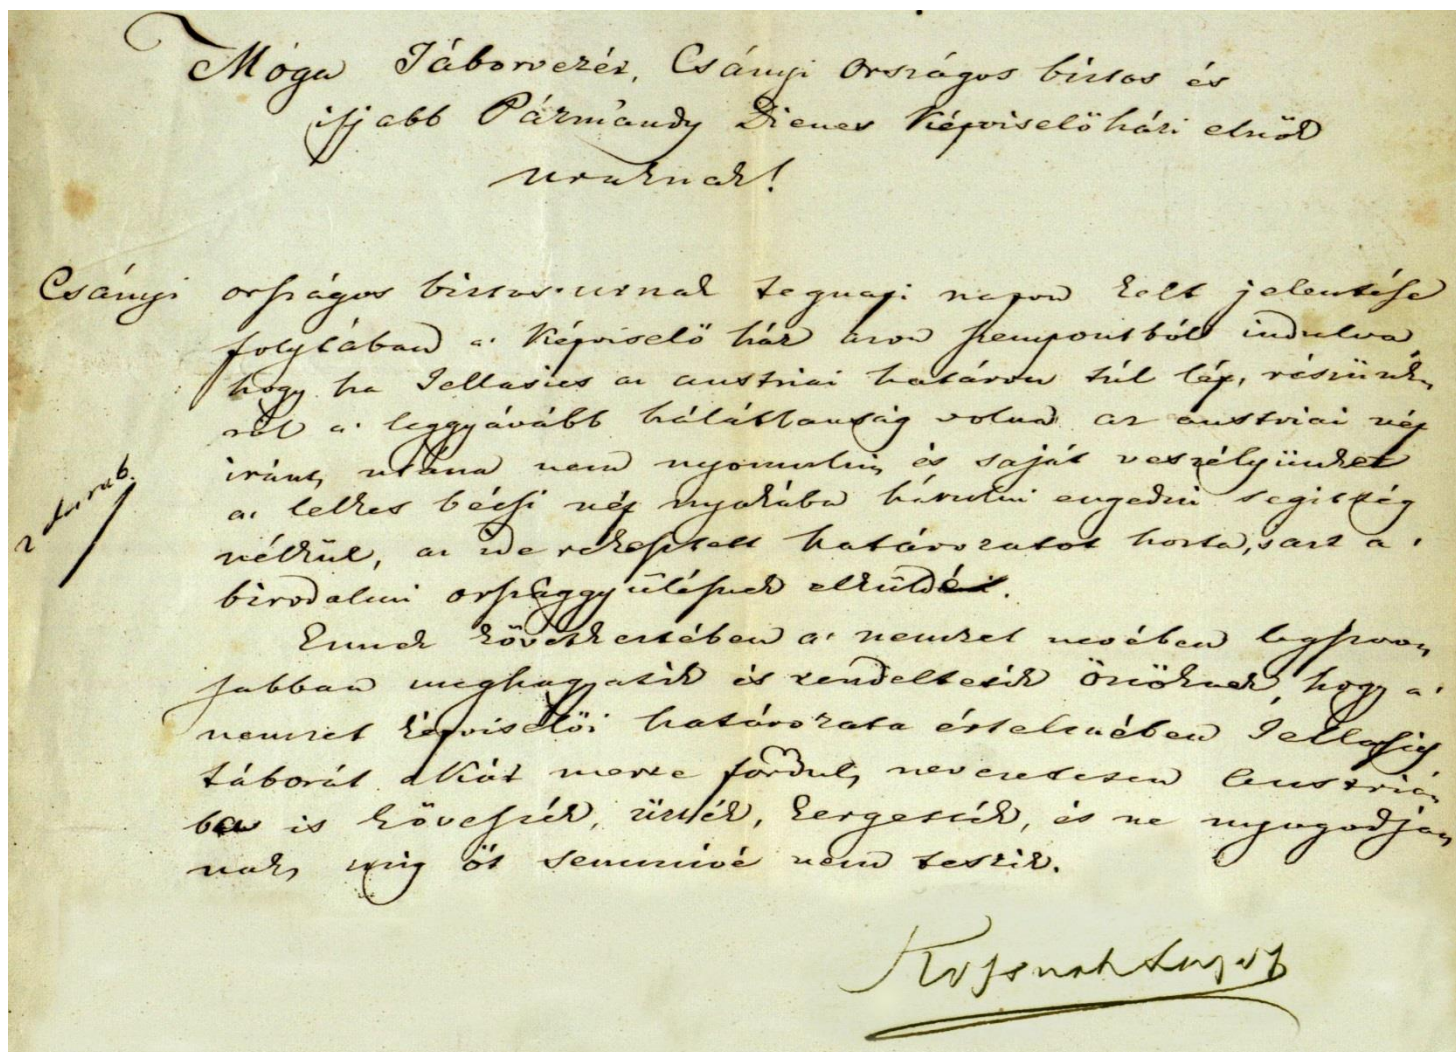 Móga Táborvezér, Csányi Országos biztos és
ifjabb Pázmándy Dienes Képviselőházi elnök
uraknak!
Csányi országos biztos urnak tegnapi napon kelt jelentése
folytában a' Képviselő ház azon szempontból indulva
hogy ha Jellasics az austriai határon túl lép, részünk„
ről a' leggyávább hálátlanság volna az austriai nép
iránt, utána nem nyomulni, és saját veszélyünket
a' lelkes bécsi nép nyakába hárulni engedni segitség
nélkül, az ide rekesztett határozatot hozta, s azt a'
birodalmi országgyülésnek elküldé.
2 darab.
Ennek következtében a' nemzet nevében legszoro„
sabban meghagyatik és rendeltetik Önöknek, hogy a'
nemzet képviselői határozata értelmében Jellasics
táborát akár merre fordul, nevezetesen Austriá„
ba is kövessék, üzzék, kergessék, és ne nyugodja„
nak, mig őt semmivé nem teszik.
Kossuth Lajos